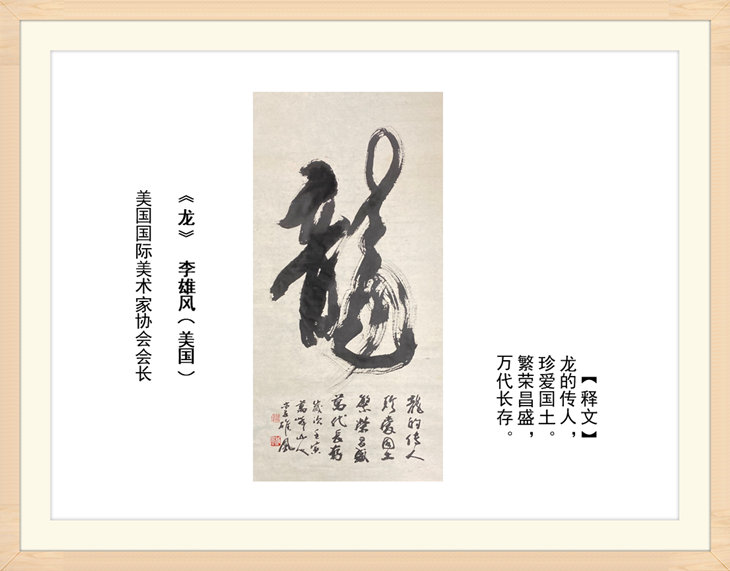 《龙》 李雄风（美国）
美国国际美术家协会会长
龍
龍的传人
珍爱国土
繁榮昌盛
萬代長存
歲次壬寅
萬峰山人
李雄風
【释文】
龙的传人，
珍爱国土。
繁荣昌盛，
万代长存。